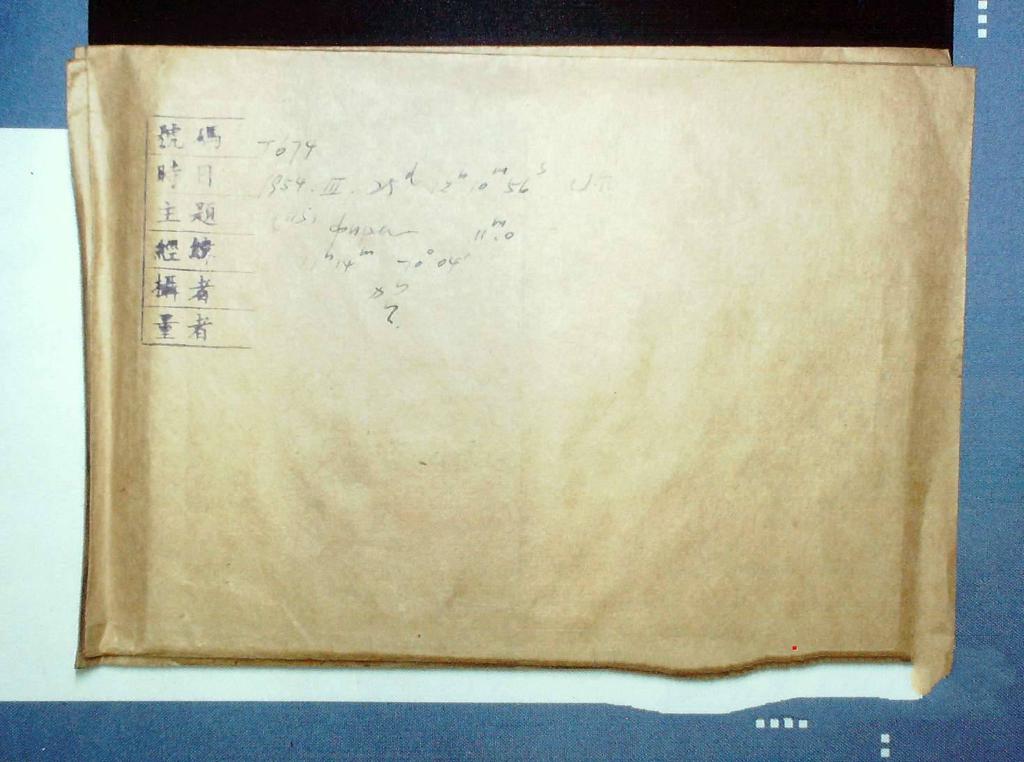 號碼 T674
時日 1954. III. 25ᵈ 12ʰ 10ᵐ 56ˢ U.T.
主題 (115)
11ᵐ.0
經緯 14ᵐ -10° 04'
攝者
量者 ?